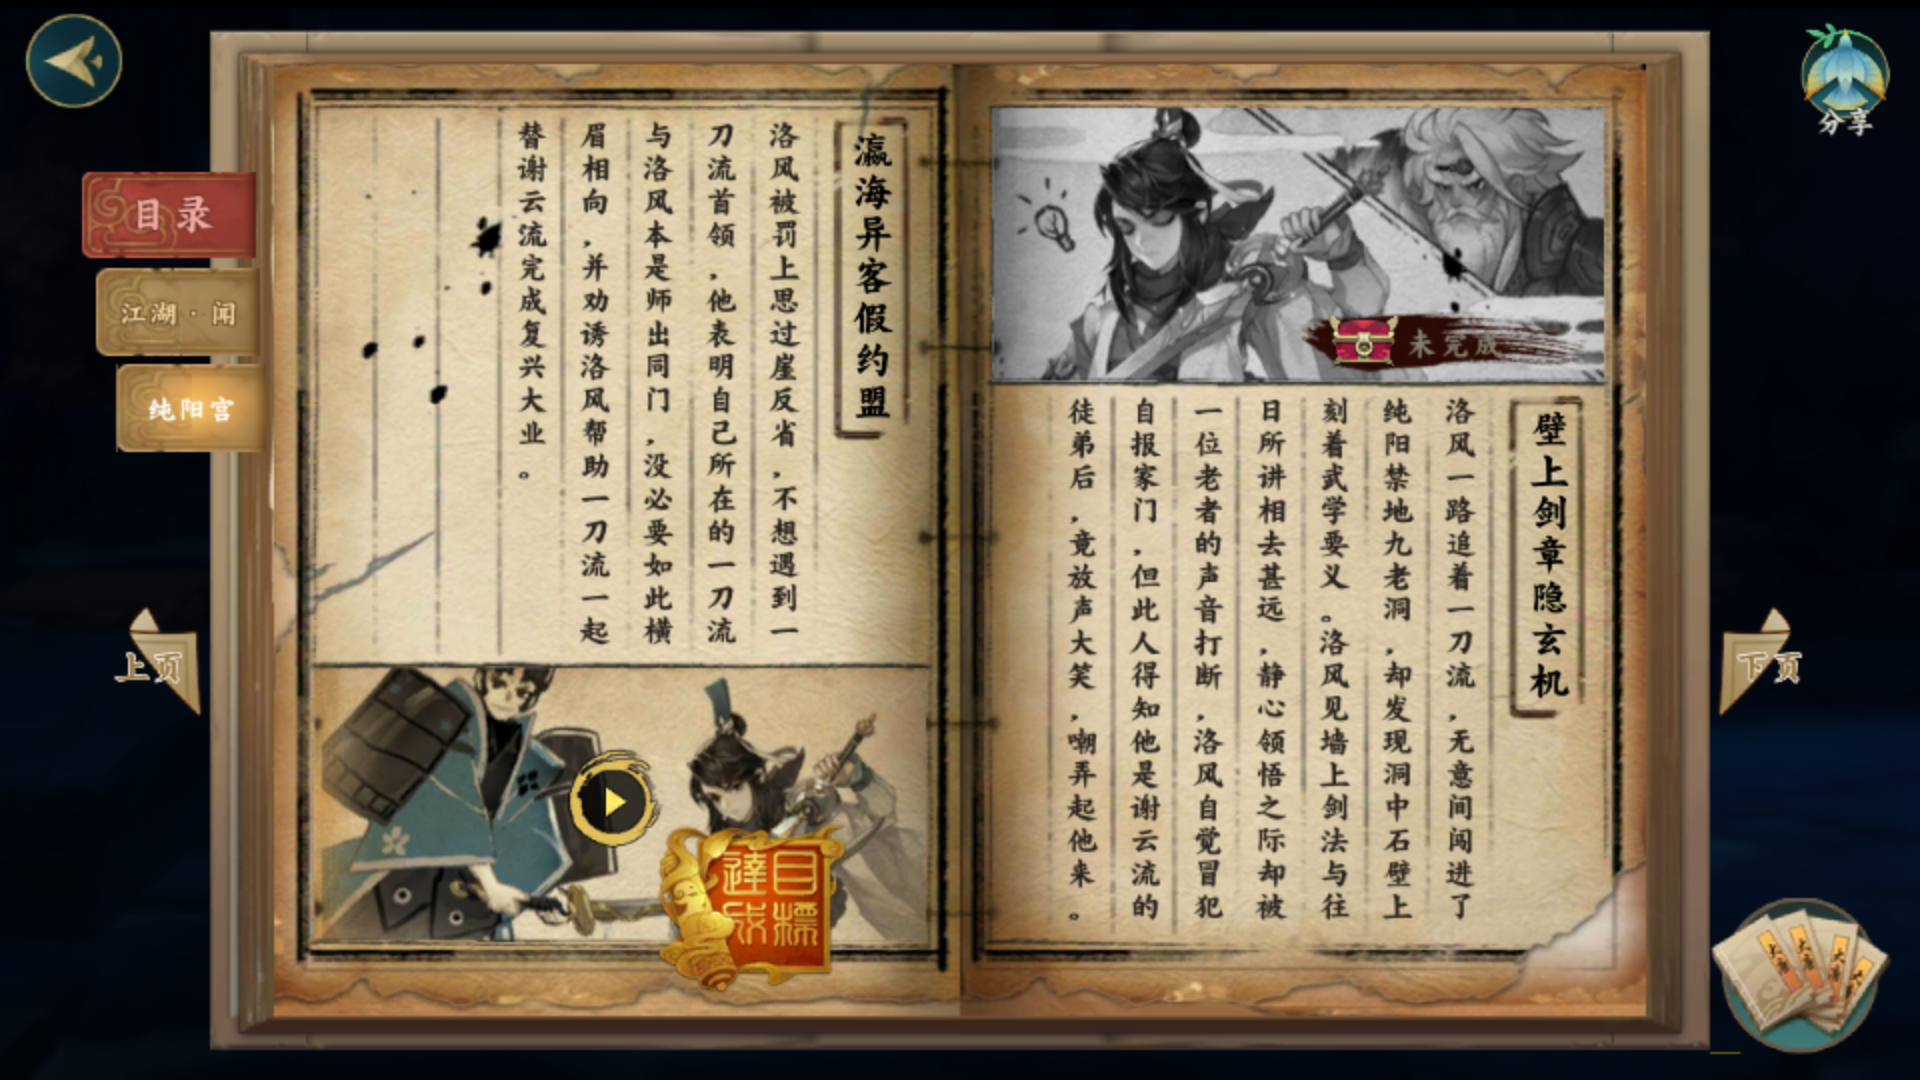 分享
目录
江湖·闻
纯阳宫
壁上剑章隐玄机
洛风一路追着一刀流，无意间闯进了
纯阳禁地九老洞，却发现洞中石壁上
刻着武学要义。洛风见墙上剑法与往
日所讲相去甚远，静心领悟之际却被
一位老者的声音打断，洛风自觉冒犯
自报家门，但此人得知他是谢云流的
徒弟后，竟放声大笑，嘲弄起他来。
未完成
瀛海异客假约盟
洛风被罚上思过崖反省，不想遇到一
刀流首领，他表明自己所在的一刀流
与洛风本是师出同门，没必要如此横
眉相向，并劝诱洛风帮助一刀流一起
替谢云流完成复兴大业。
目標
達成
上页
下页